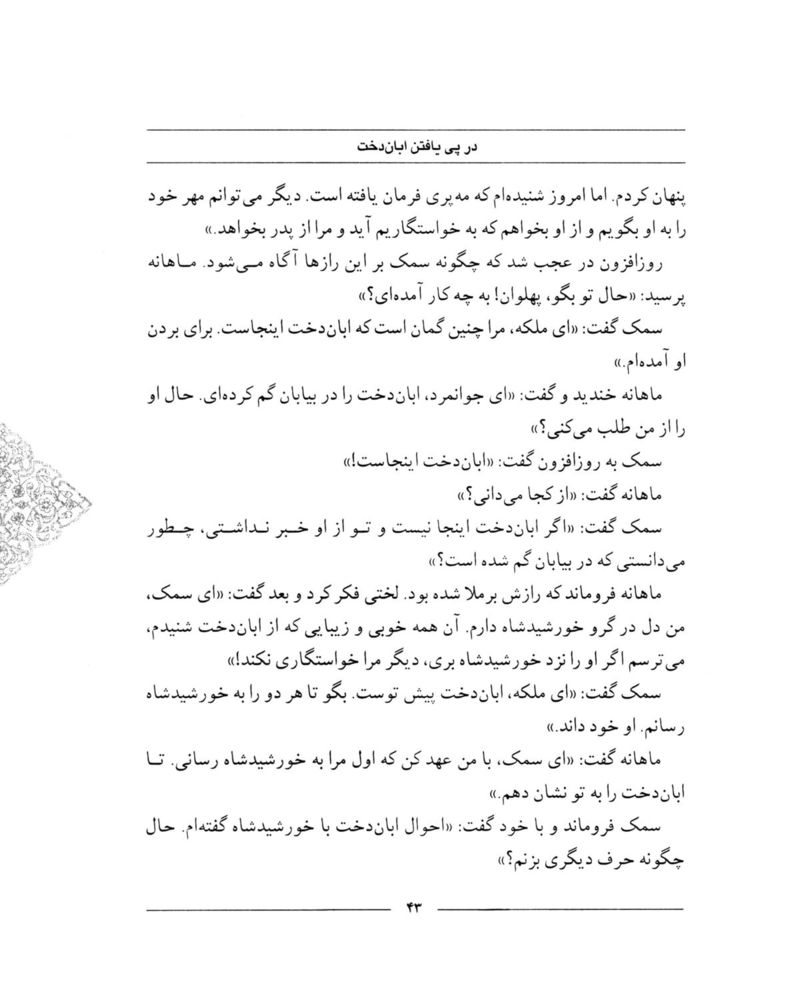 در پی یافتن ابان‌دخت
پنهان کردم. اما امروز شنیده‌ام که مه‌پری فرمان یافته است. دیگر می‌توانم مهر خود
را به او بگویم و از او بخواهم که به خواستگاریم آید و مرا از پدر بخواهد.»
روزافزون در عجب شد که چگونه سمک بر این رازها آگاه می‌شود. ماهانه
پرسید: «حال تو بگو، پهلوان! به چه کار آمده‌ای؟»
سمک گفت: «ای ملکه، مرا چنین گمان است که ابان‌دخت اینجاست. برای بردن
او آمده‌ام.»
ماهانه خندید و گفت: «ای جوانمرد، ابان‌دخت را در بیابان گم کرده‌ای. حال او
را از من طلب می‌کنی؟»
سمک به روزافزون گفت: «ابان‌دخت اینجاست!»
ماهانه گفت: «از کجا می‌دانی؟»
سمک گفت: «اگر ابان‌دخت اینجا نیست و تو از او خبر نداشتی، چطور
می‌دانستی که در بیابان گم شده است؟»
ماهانه فروماند که رازش برملا شده بود. لختی فکر کرد و بعد گفت: «ای سمک،
من دل در گرو خورشیدشاه دارم. آن همه خوبی و زیبایی که از ابان‌دخت شنیدم،
می‌ترسم اگر او را نزد خورشیدشاه بری، دیگر مرا خواستگاری نکند!»
سمک گفت: «ای ملکه، ابان‌دخت پیش توست. بگو تا هر دو را به خورشیدشاه
رسانم. او خود داند.»
ماهانه گفت: «ای سمک، با من عهد کن که اول مرا به خورشیدشاه رسانی. تا
ابان‌دخت را به تو نشان دهم.»
سمک فروماند و با خود گفت: «احوال ابان‌دخت با خورشیدشاه گفته‌ام. حال
چگونه حرف دیگری بزنم؟»
۴۳